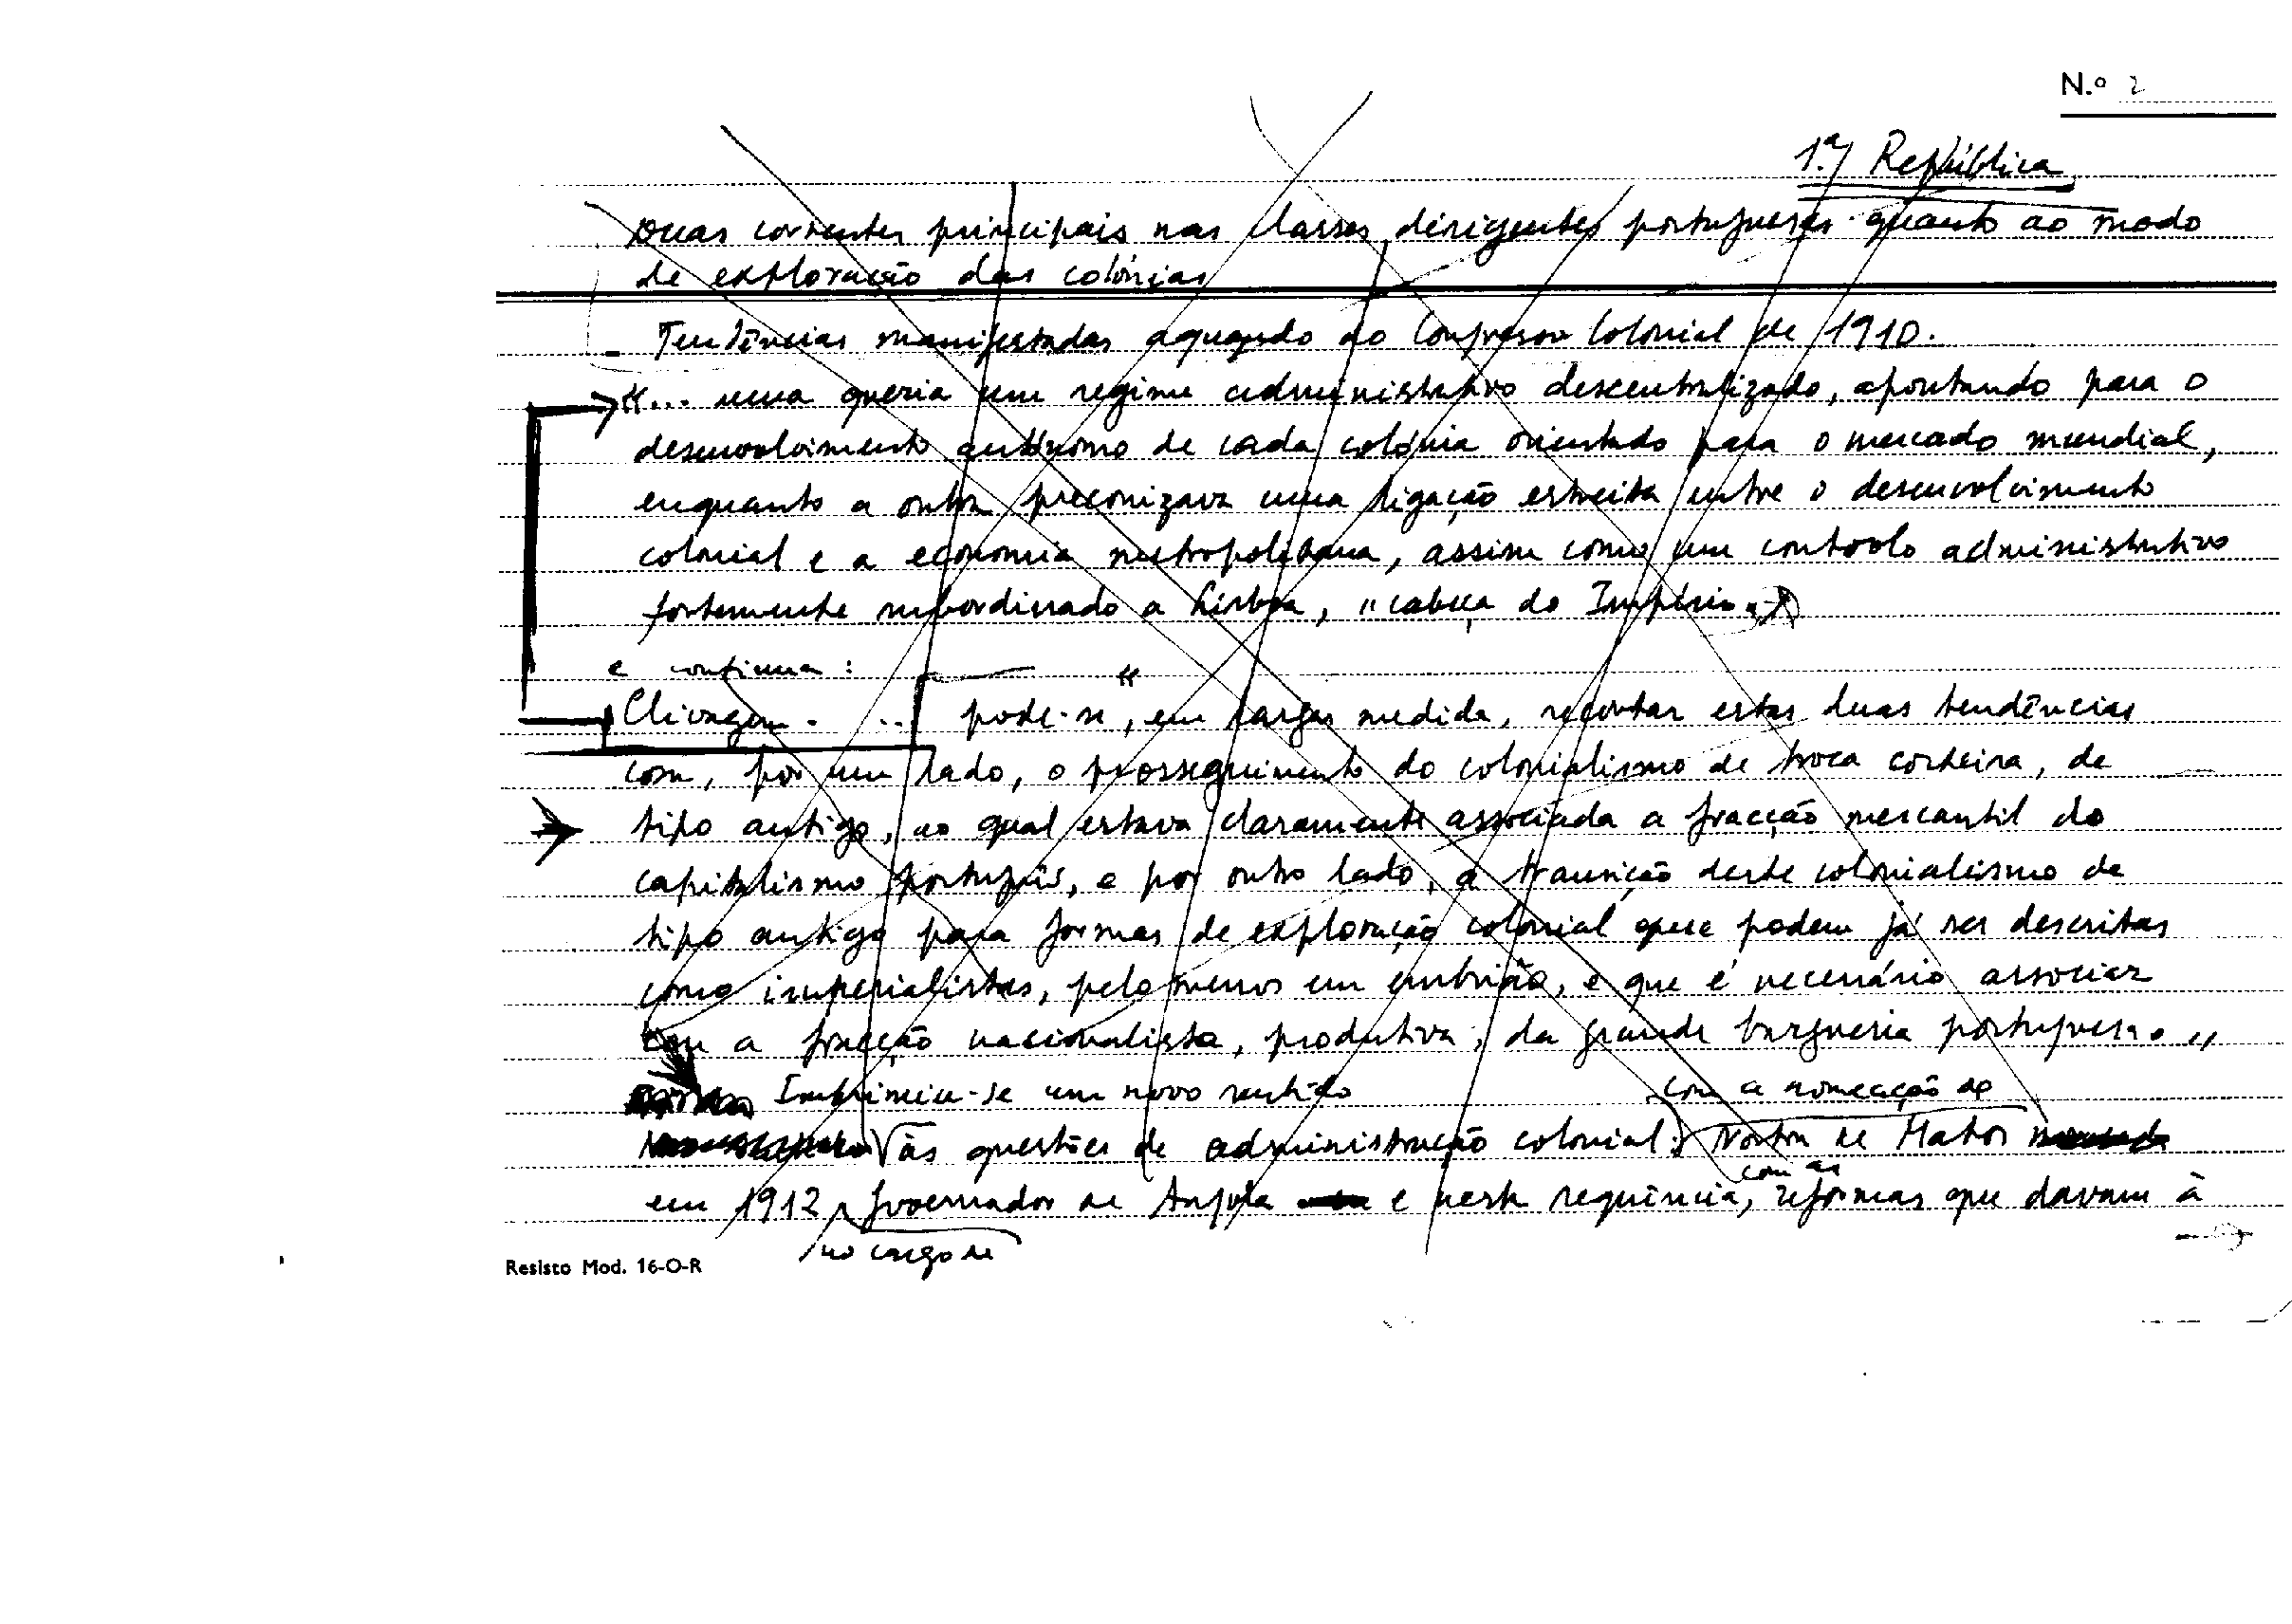 N.º 2
1.ª República
Duas correntes principais nas classes dirigentes portuguesas quanto ao modo
de exploração das colónias
- Tendências manifestadas aquando do Congresso Colonial de 1910.
«... uma queria um regime administrativo descentralizado, apontando para o
desenvolvimento autónomo de cada colónia orientado para o mercado mundial,
enquanto a outra preconizava uma ligação estreita entre o desenvolvimento
colonial e a economia metropolitana, assim como um controlo administrativo
fortemente subordinado a Lisboa, "cabeça do Império"»
e continua: «
Clivagem. ... pode-se, em larga medida, recortar estas duas tendências
com, por um lado, o prosseguimento do colonialismo de troca costeira, de
tipo antigo, ao qual estava claramente associada a fracção mercantil do
capitalismo português, e por outro lado, a transição deste colonialismo de
tipo antigo para formas de exploração colonial que podem já ser descritas
como imperialistas, pelo menos em embrião, e que é necessário associar
com a fracção nacionalista, produtiva, da grande burguesia portuguesa.»
Imprimiu-se um novo sentido com a nomeação de
às questões de administração colonial: Norton de Matos
em 1912 governador de Angola e nesta sequência, com as reformas que davam à
no cargo de
Resisto Mod. 16-O-R